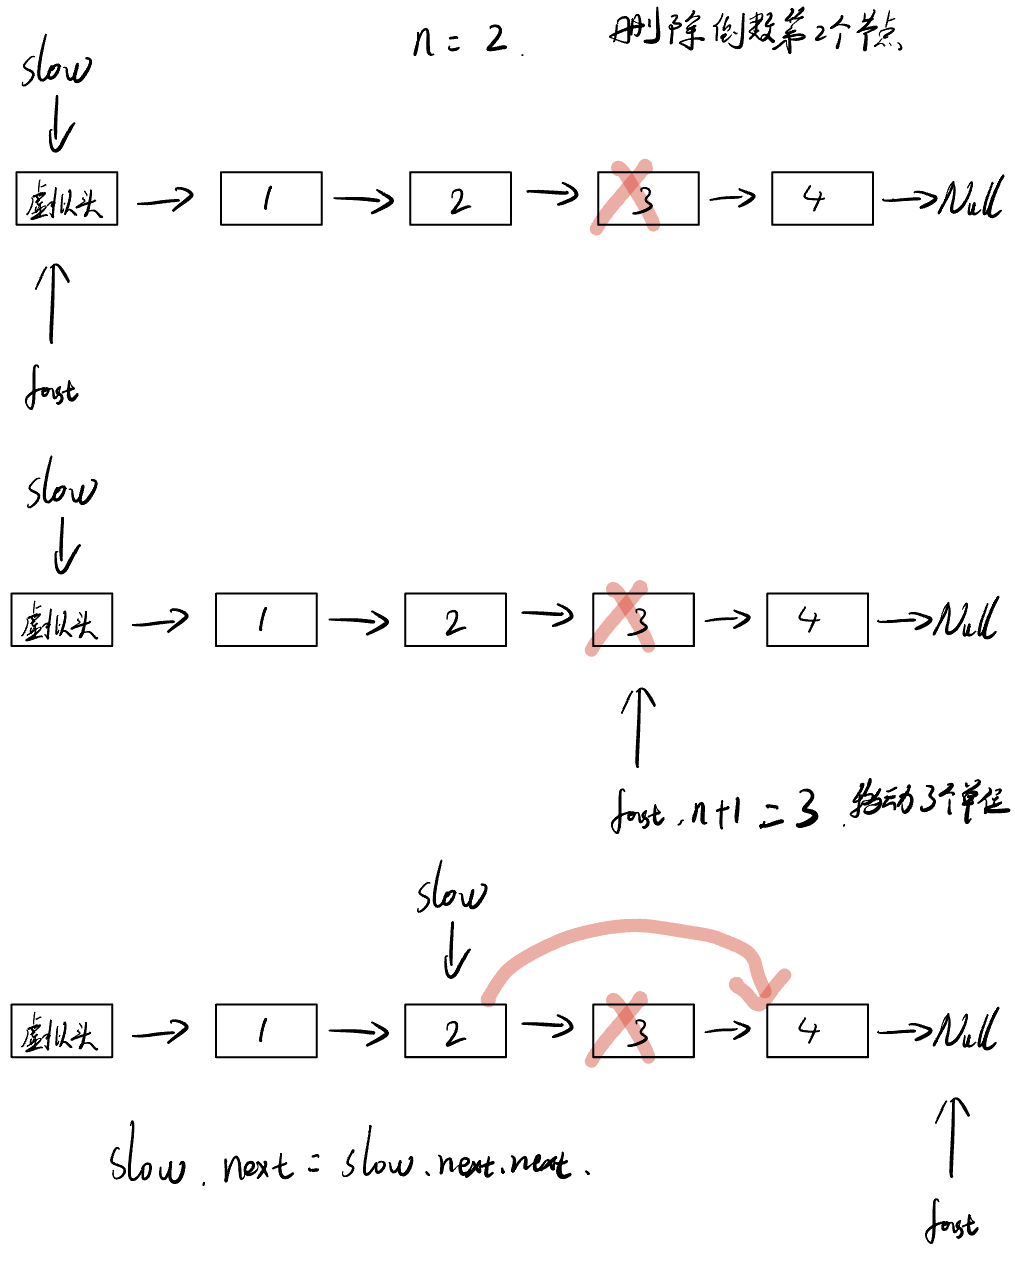 n = 2. 删除倒数第2个节点
slow
虚拟头 1 2 3 4 Null
fast
slow
虚拟头 1 2 3 4 Null
fast. n+1 = 3. 移动3个单位
slow
虚拟头 1 2 3 4 Null
slow. next = slow. next. next.
fast